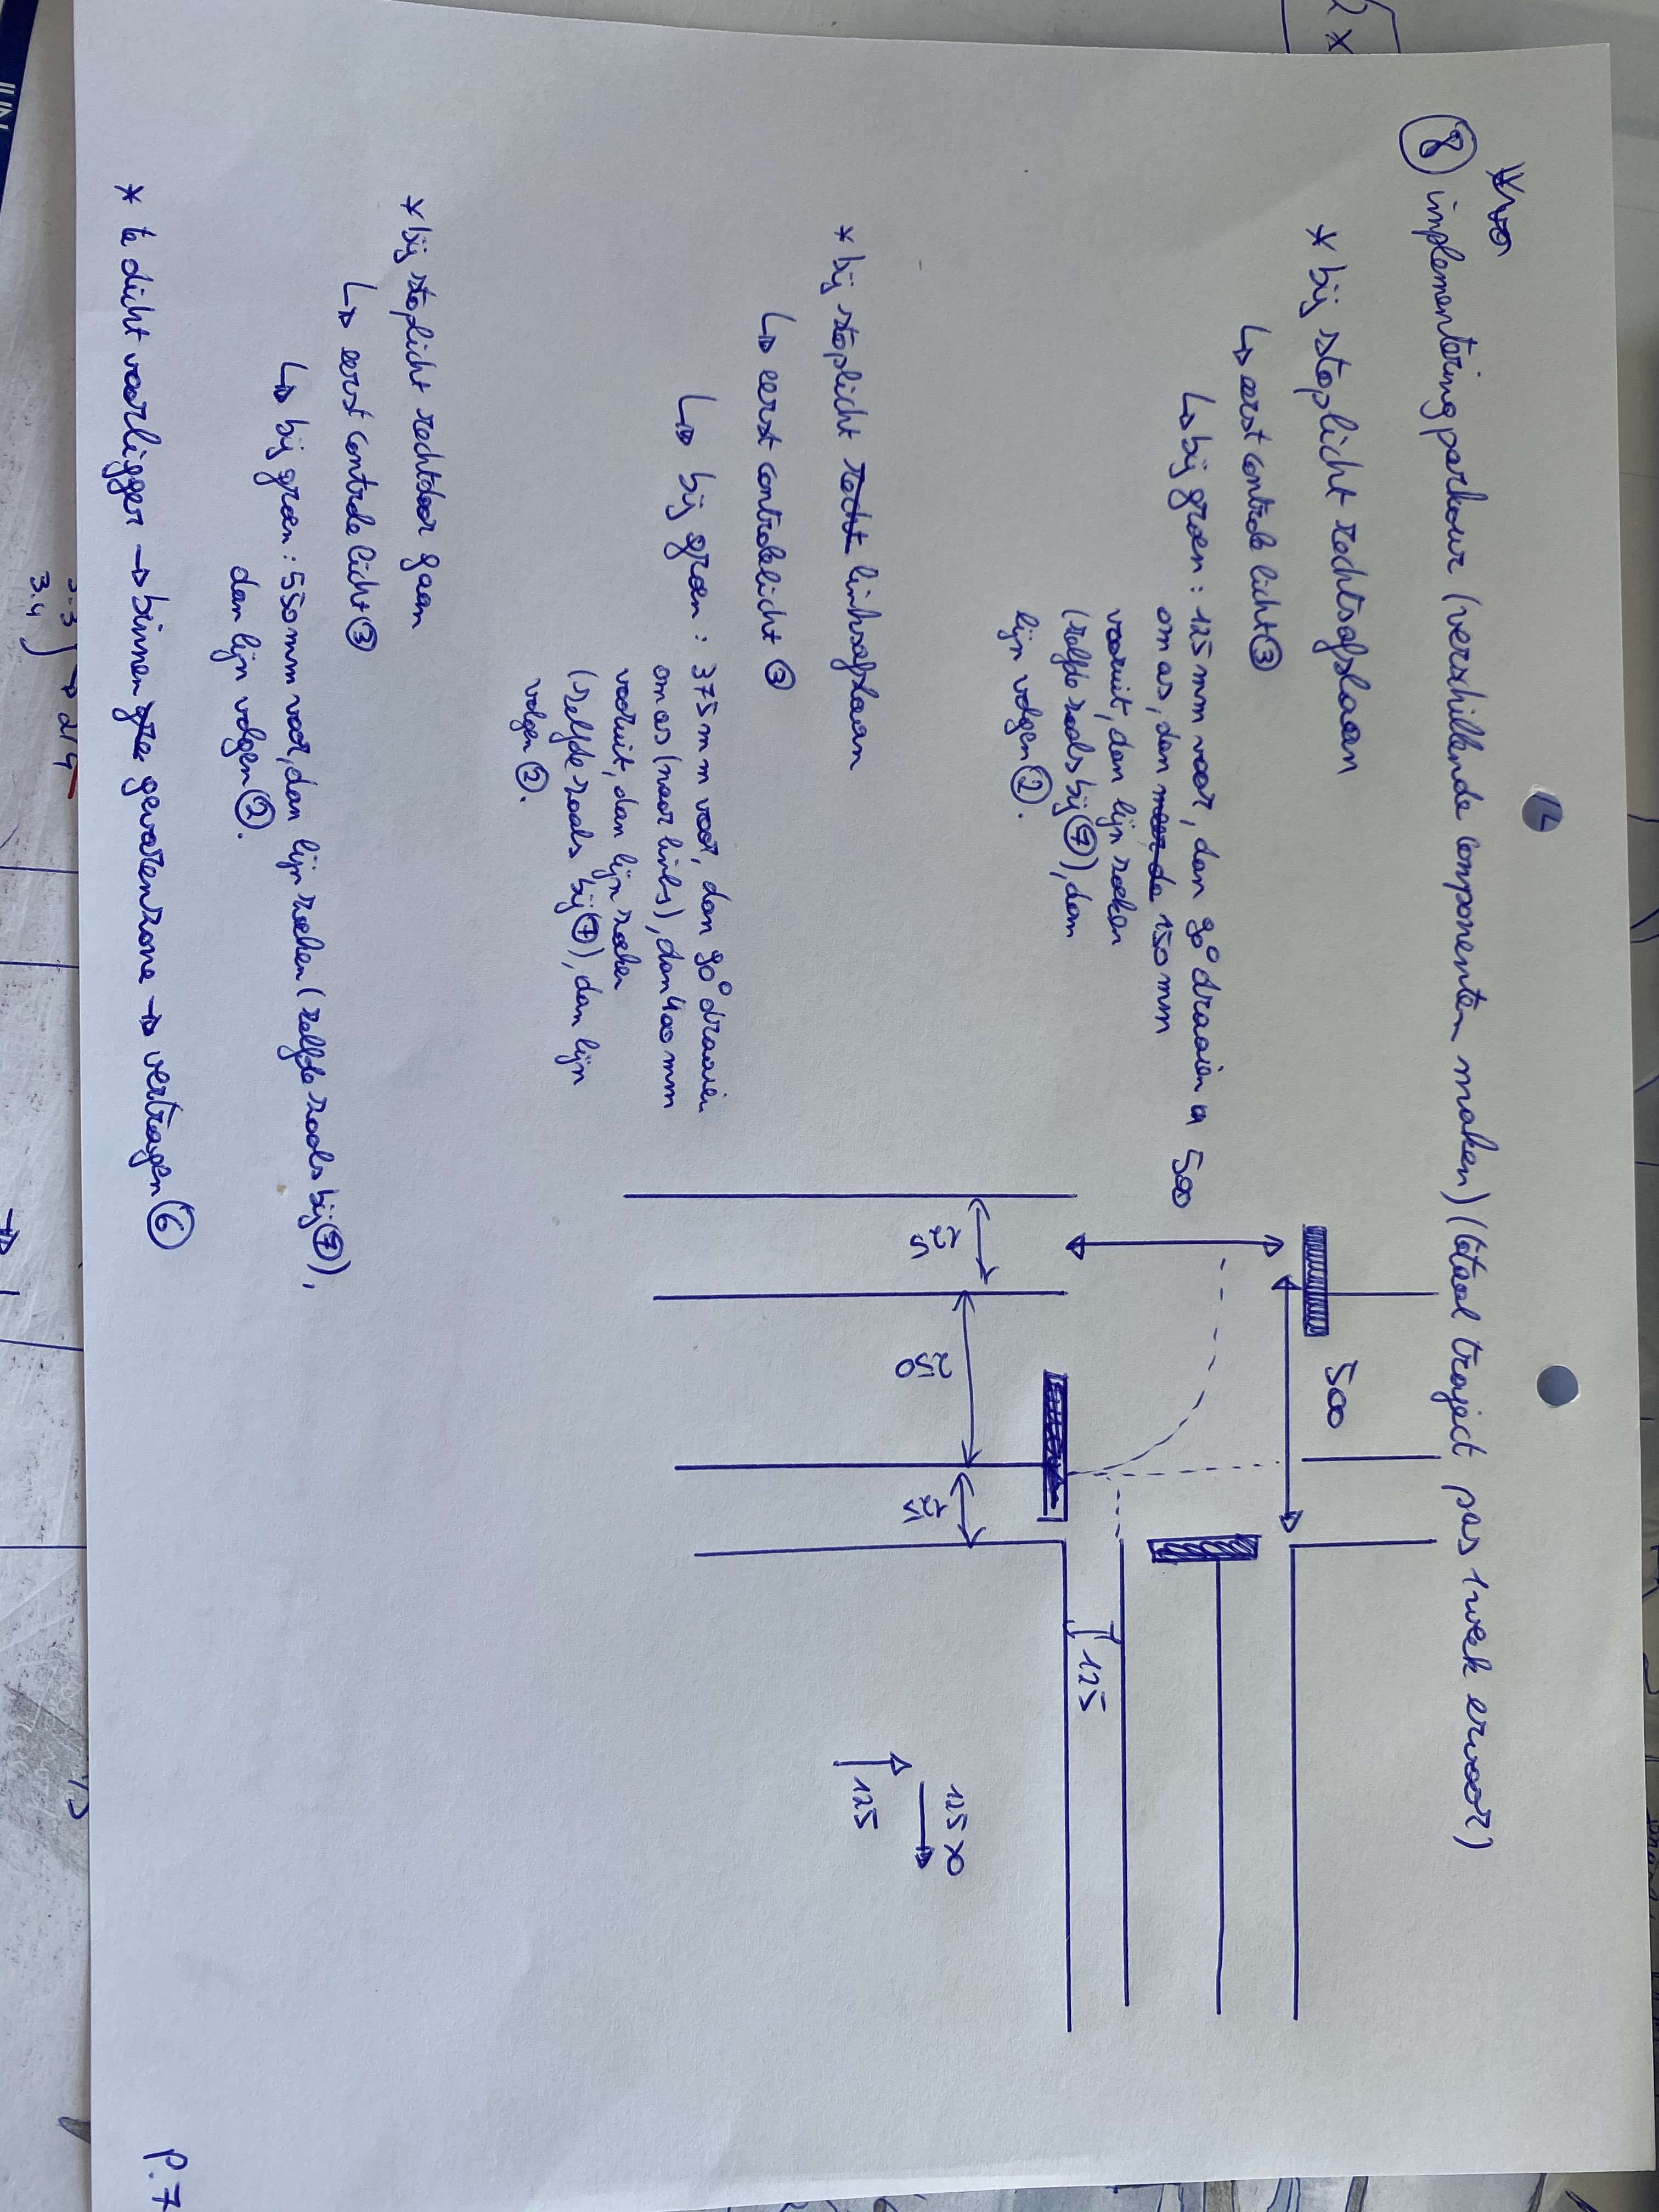 ⑧ implementering parkour (verschillende componenten maken) (totaal traject pas 1 week ervoor)
* bij stoplicht rechtsafslaan
↳ eerst controle licht ③
↳ bij groen : 125 mm voor, dan 90° draaien
om as, dan 150 mm
vooruit, dan lijn zoeken
(zelfde zoals bij ⑦), dan
lijn volgen ②.
* bij stoplicht linksafslaan
↳ eerst controle licht ③
↳ bij groen : 375 mm voor, dan 90° draaien
om as (naar links), dan 400 mm
vooruit, dan lijn zoeken
(zelfde zoals bij ⑦), dan lijn
volgen ②.
* bij stoplicht rechtdoor gaan
↳ eerst controle licht ③
↳ bij groen : 550 mm voor, dan lijn zoeken (zelfde zoals bij ⑦),
dan lijn volgen ②.
* te dicht voorligger → binnen gevarenzone → vertragen ⑥
500
500
125
250
125
125
125
125
P.7
2x
3.3
3.4